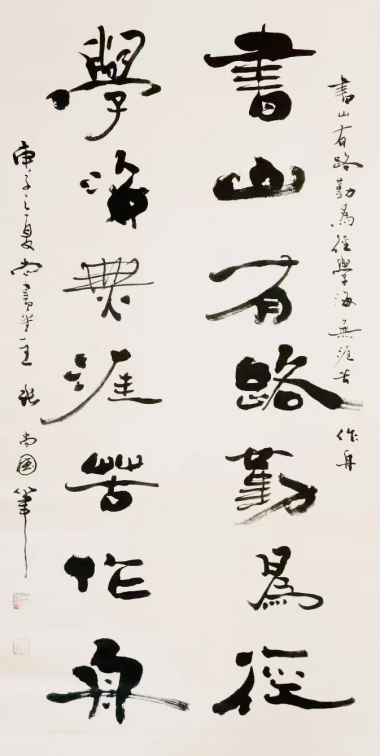 書山有路勤為徑學海無涯苦作舟
書山有路勤為徑
學海無涯苦作舟
庚子之夏尚書主張尚國筆